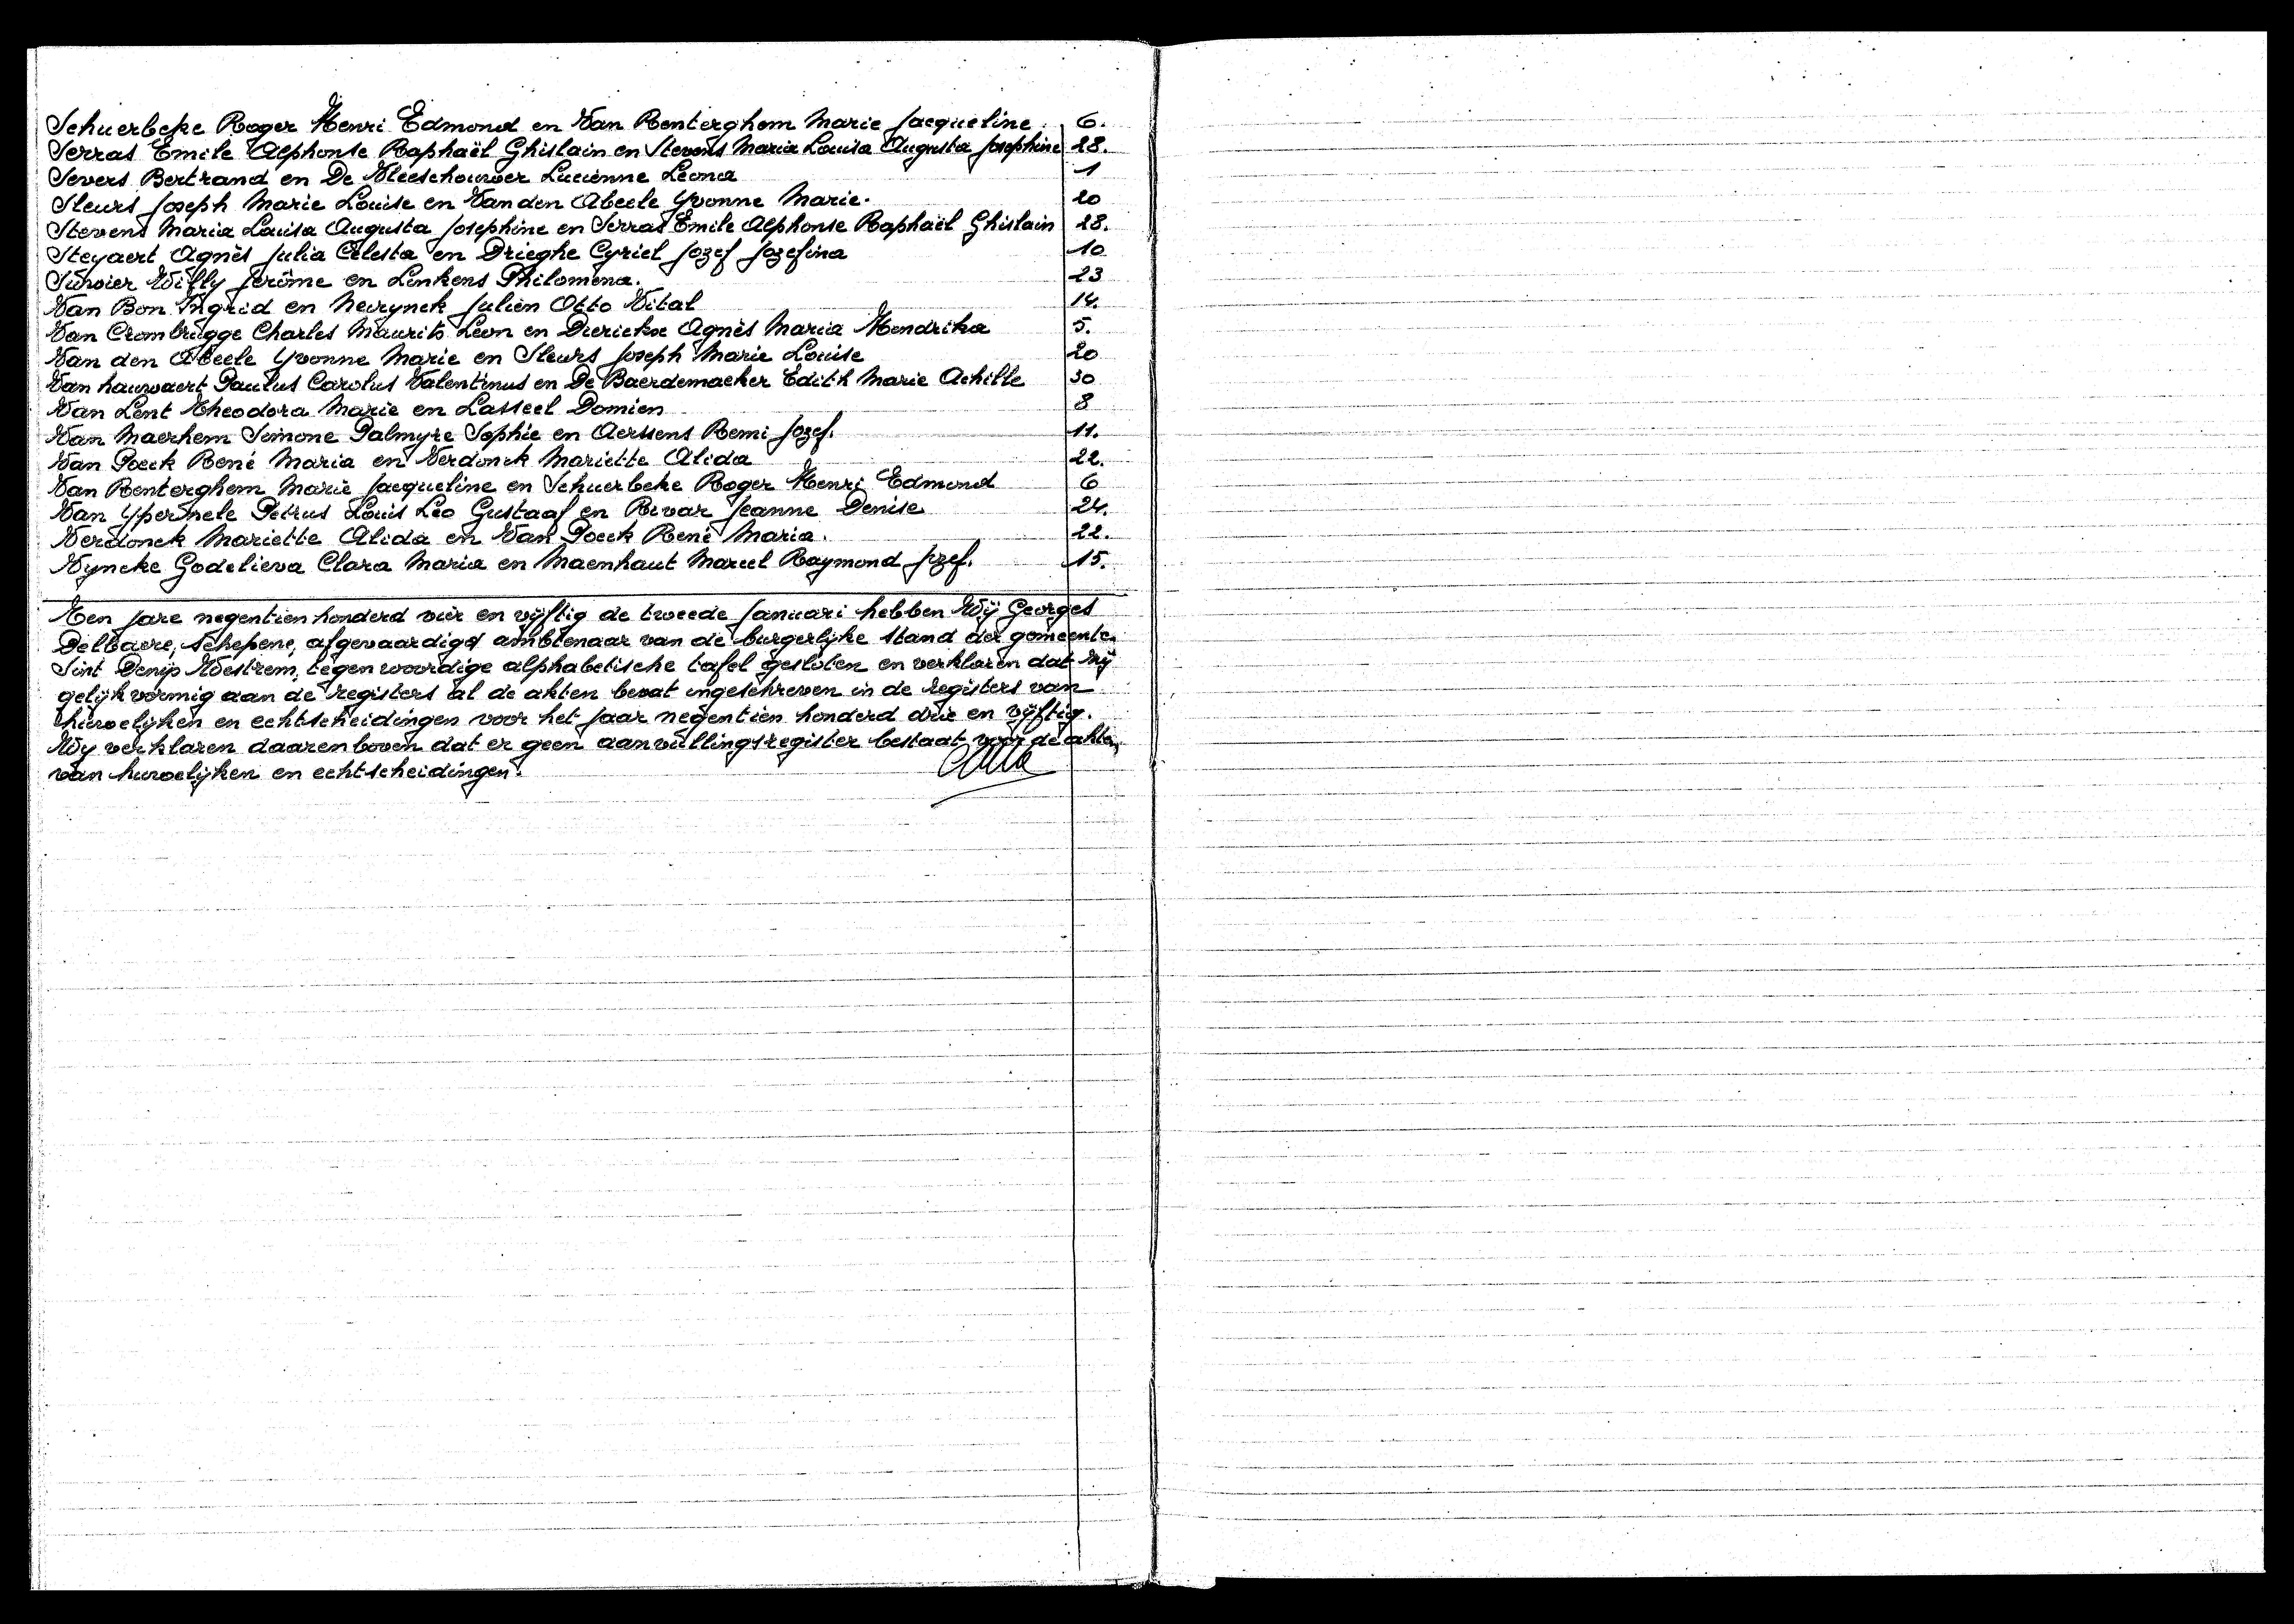 Schuerbeke Roger Henri Edmond en Van Renterghem Marie Jacqueline. 6.
Serras Emile Alphonse Raphaël Ghislain en Stevens Maria Louisa Augusta Josephine 28.
Severs Bertrand en De Vleeschouwer Lucienne Leona 1
Sleurs Joseph Marie Louise en Van den Abeele Yvonne Marie. 20
Stevens Maria Louisa Augusta Josephine en Serras Emile Alphonse Raphaël Ghislain 28.
Steyaert Agnès Julia Celesta en Drieghe Cyriel Jozef Jozefina 10
Survier Willy Jerôme en Linkens Philomena. 23
Van Bon Ingrid en Neirynck Julien Otto Vital 14.
Van Crombrugge Charles Maurits Leon en Dierickx Agnès Maria Hendrika 5.
Van den Abeele Yvonne Marie en Sleurs Joseph Marie Louise 20
Van hauwaert Paulus Carolus Valentinus en De Baerdemaeker Edith Marie Achille 30
Van Lent Theodora Marie en Lasseel Domien 8
Van Maerhem Simone Palmyre Sophie en Aerssens Remi Jozef. 11.
Van Poeck René Maria en Verdonck Mariette Alida 22.
Van Renterghem Marie Jacqueline en Schuerbeke Roger Henri Edmond 6
Van Ypersele Petrus Louis Leo Gustaaf en Rivar Jeanne Denise 24.
Verdonck Mariette Alida en Van Poeck René Maria. 22.
Vyncke Godelieva Clara Maria en Maenhaut Marcel Raymond Jozef. 15.
Ten jare negentien honderd vier en vijftig de tweede Januari hebben Wij Georges
Delbaere, Schepene, afgevaardigd ambtenaar van de burgerlijke stand der gemeente
Sint Denijs Westrem, tegenwoordige alphabetische tafel gesloten en verklaren dat zij
gelijkvormig aan de registers al de akten bevat ingeschreven in de registers van
huwelijken en echtscheidingen voor het jaar negentien honderd drie en vijftig.
Wij verklaren daarenboven dat er geen aanvullingsregister bestaat voor de akten
van huwelijken en echtscheidingen.